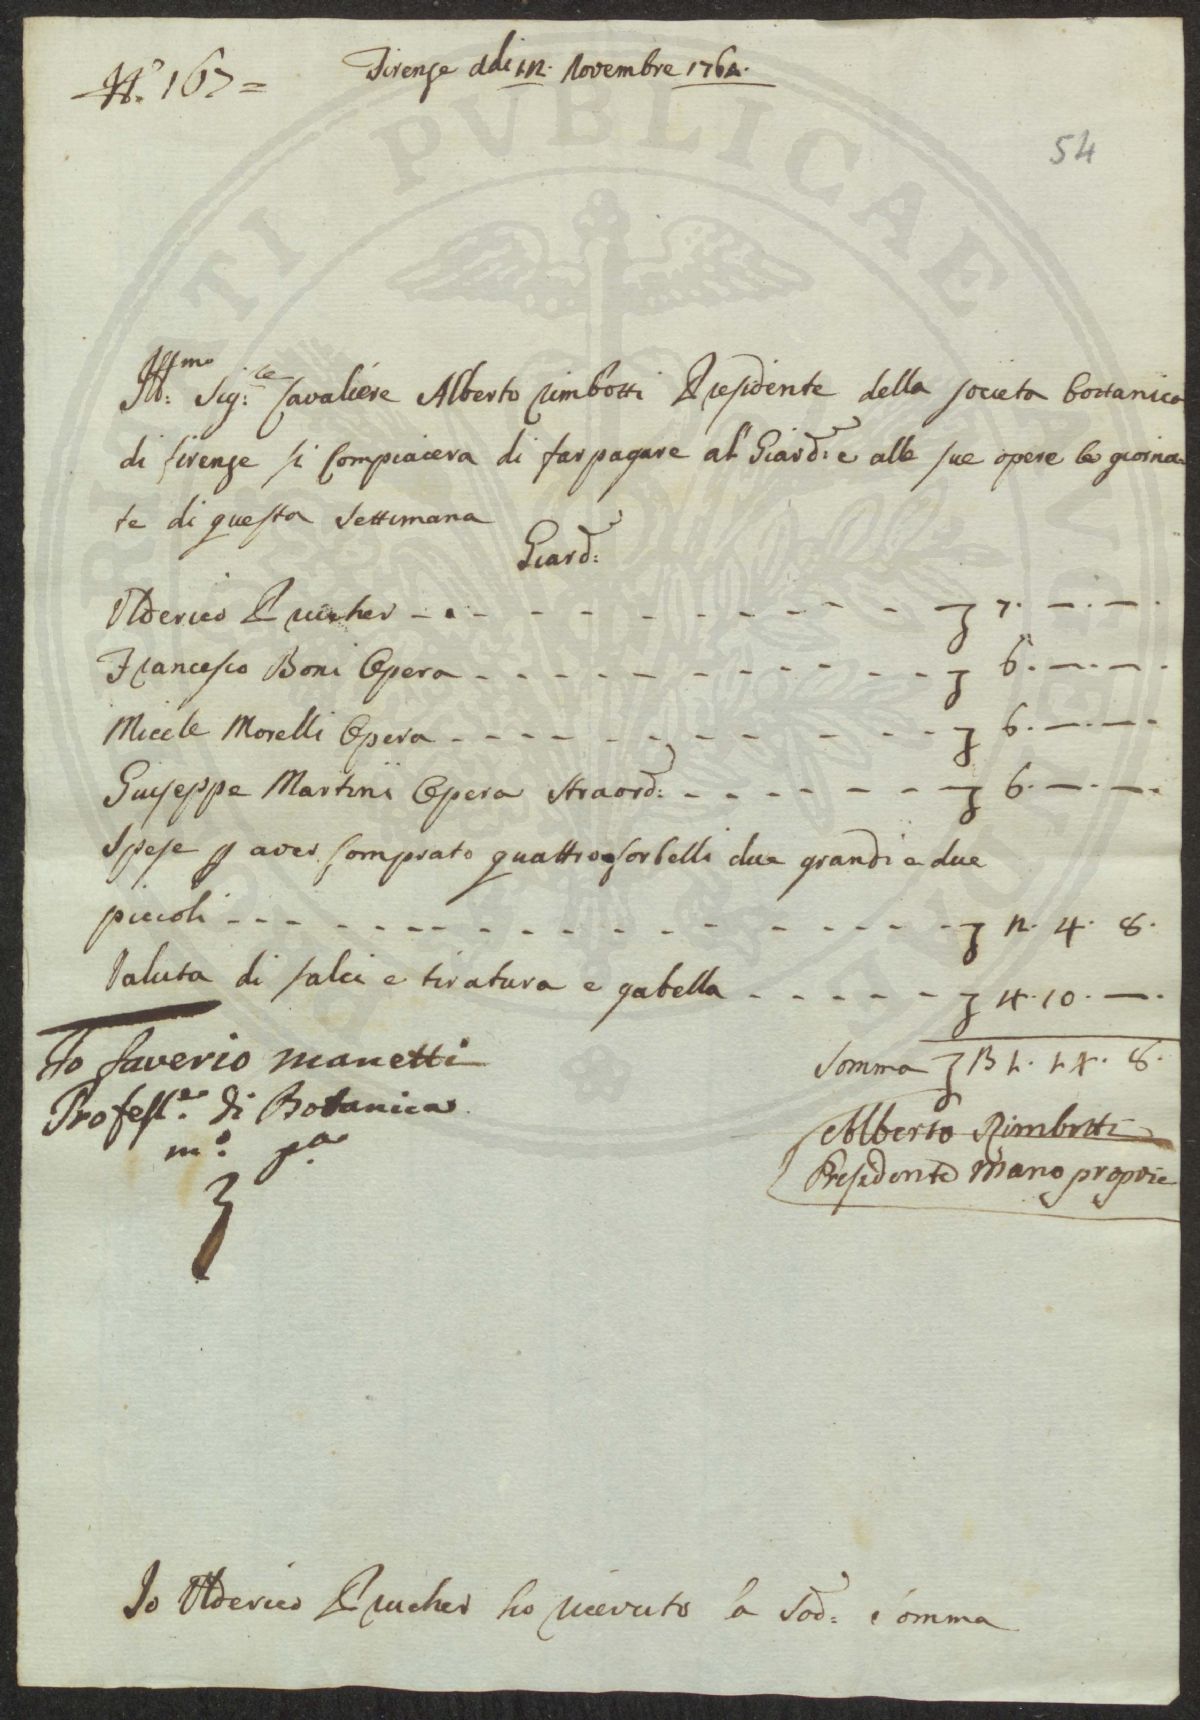 N.° 167 =
Firenze adi 12. Novembre 1764.
54
Ill:mo Sig:re Cavaliere Alberto Rimbotti Presidente della societa bottanica
di firenze si Compiacera di far pagare al Giard:e e alle sue opere le giorna-
te di questa settimana
Giard:e
Ulderico Prucher - - - - - - - - - - - 7. —. —.
Francesco Boni Opera - - - - - - - - - - 6. —. —.
Micele Morelli Opera - - - - - - - - - - 6. —. —
Giuseppe Martini Opera straord:a - - - - - - 6. —. —.
Spese p aver Comprato quattro Corbelli due grandi e due
piccoli - - - - - - - - - - - - - - - 12. 4. 8.
Valuta di salci e tiratura e gabella - - - - - 4. 10. —.
Somma 8.
Io Saverio Manetti
Profess.re di Botanica
m.o p.a
Alberto Rimbotti
Presidente Mano propria
Io Ulderico Prucher ho ricevuto la Sod:a somma
TI PVBLICAE